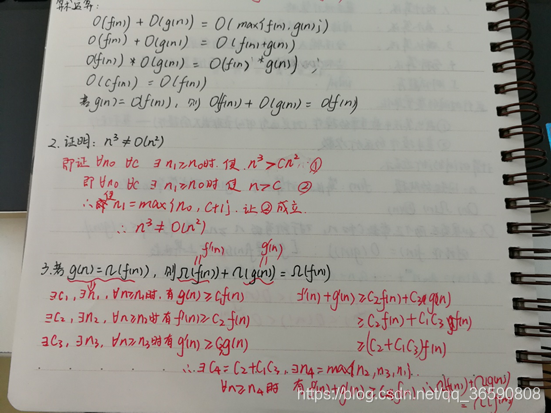 O(f(n)) + O(g(n)) = O(max{f(n), g(n)})
O(f(n)) + O(g(n)) = O(f(n)+g(n))
O(f(n)) * O(g(n)) = O(f(n) * g(n)) ;
O(cf(n)) = O(f(n))
若g(n) = O(f(n)), 则 O(f(n)) + O(g(n)) = O(f(n))
2. 证明: n³ ≠ O(n²)
即证 ∀n₀ ∀c ∃n₁≥n₀时. 使 n³ > Cn² ①
即 ∀n₀ ∀c ∃n₁≥n₀时 使 n>C ②
n₁ = max{n₀, C+1}. 让②成立
∴ n³ ≠ O(n²)
f'(n) g'(n)
3. 若 g(n)=Ω(f(n)), 则Ω(f(n))+Ω(g(n)) = Ω(f(n))
∃c₁, ∃n₁, ∀n≥n₁时. 有 g(n) ≥ c₁f(n) f'(n)+g'(n) ≥ C₂f(n)+C₃g(n)
∃C₂, ∃n₂, ∀n≥n₂时 有 f'(n) ≥ C₂f(n) ≥ C₂f(n)+C₁C₃f(n)
∃C₃, ∃n₃, ∀n≥n₃时 有 g'(n) ≥ C₃g(n) ≥ (C₂+C₁C₃)f(n)
∴ ∃C₄ = C₂+C₁C₃, ∃n₄ = max{n₂, n₃, n₁}
∀n≥n₄时 有
https://blog.csdn.net/qq_36590808